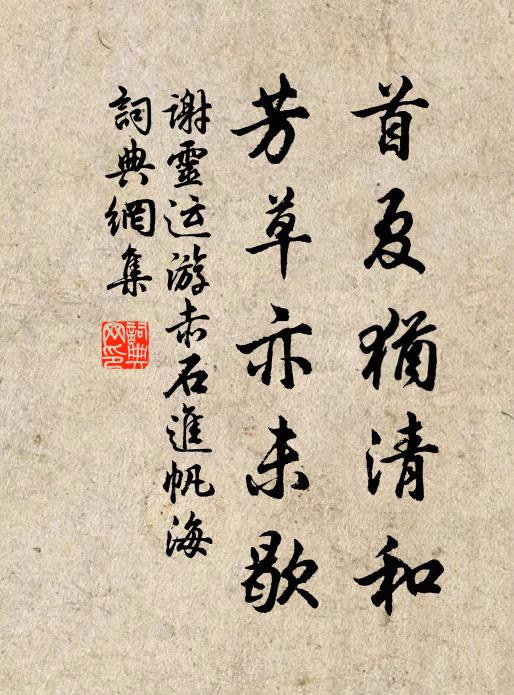 首夏猶清和
芳草亦未歇
谢靈运游赤石進帆海
詞典網集
詞典网印